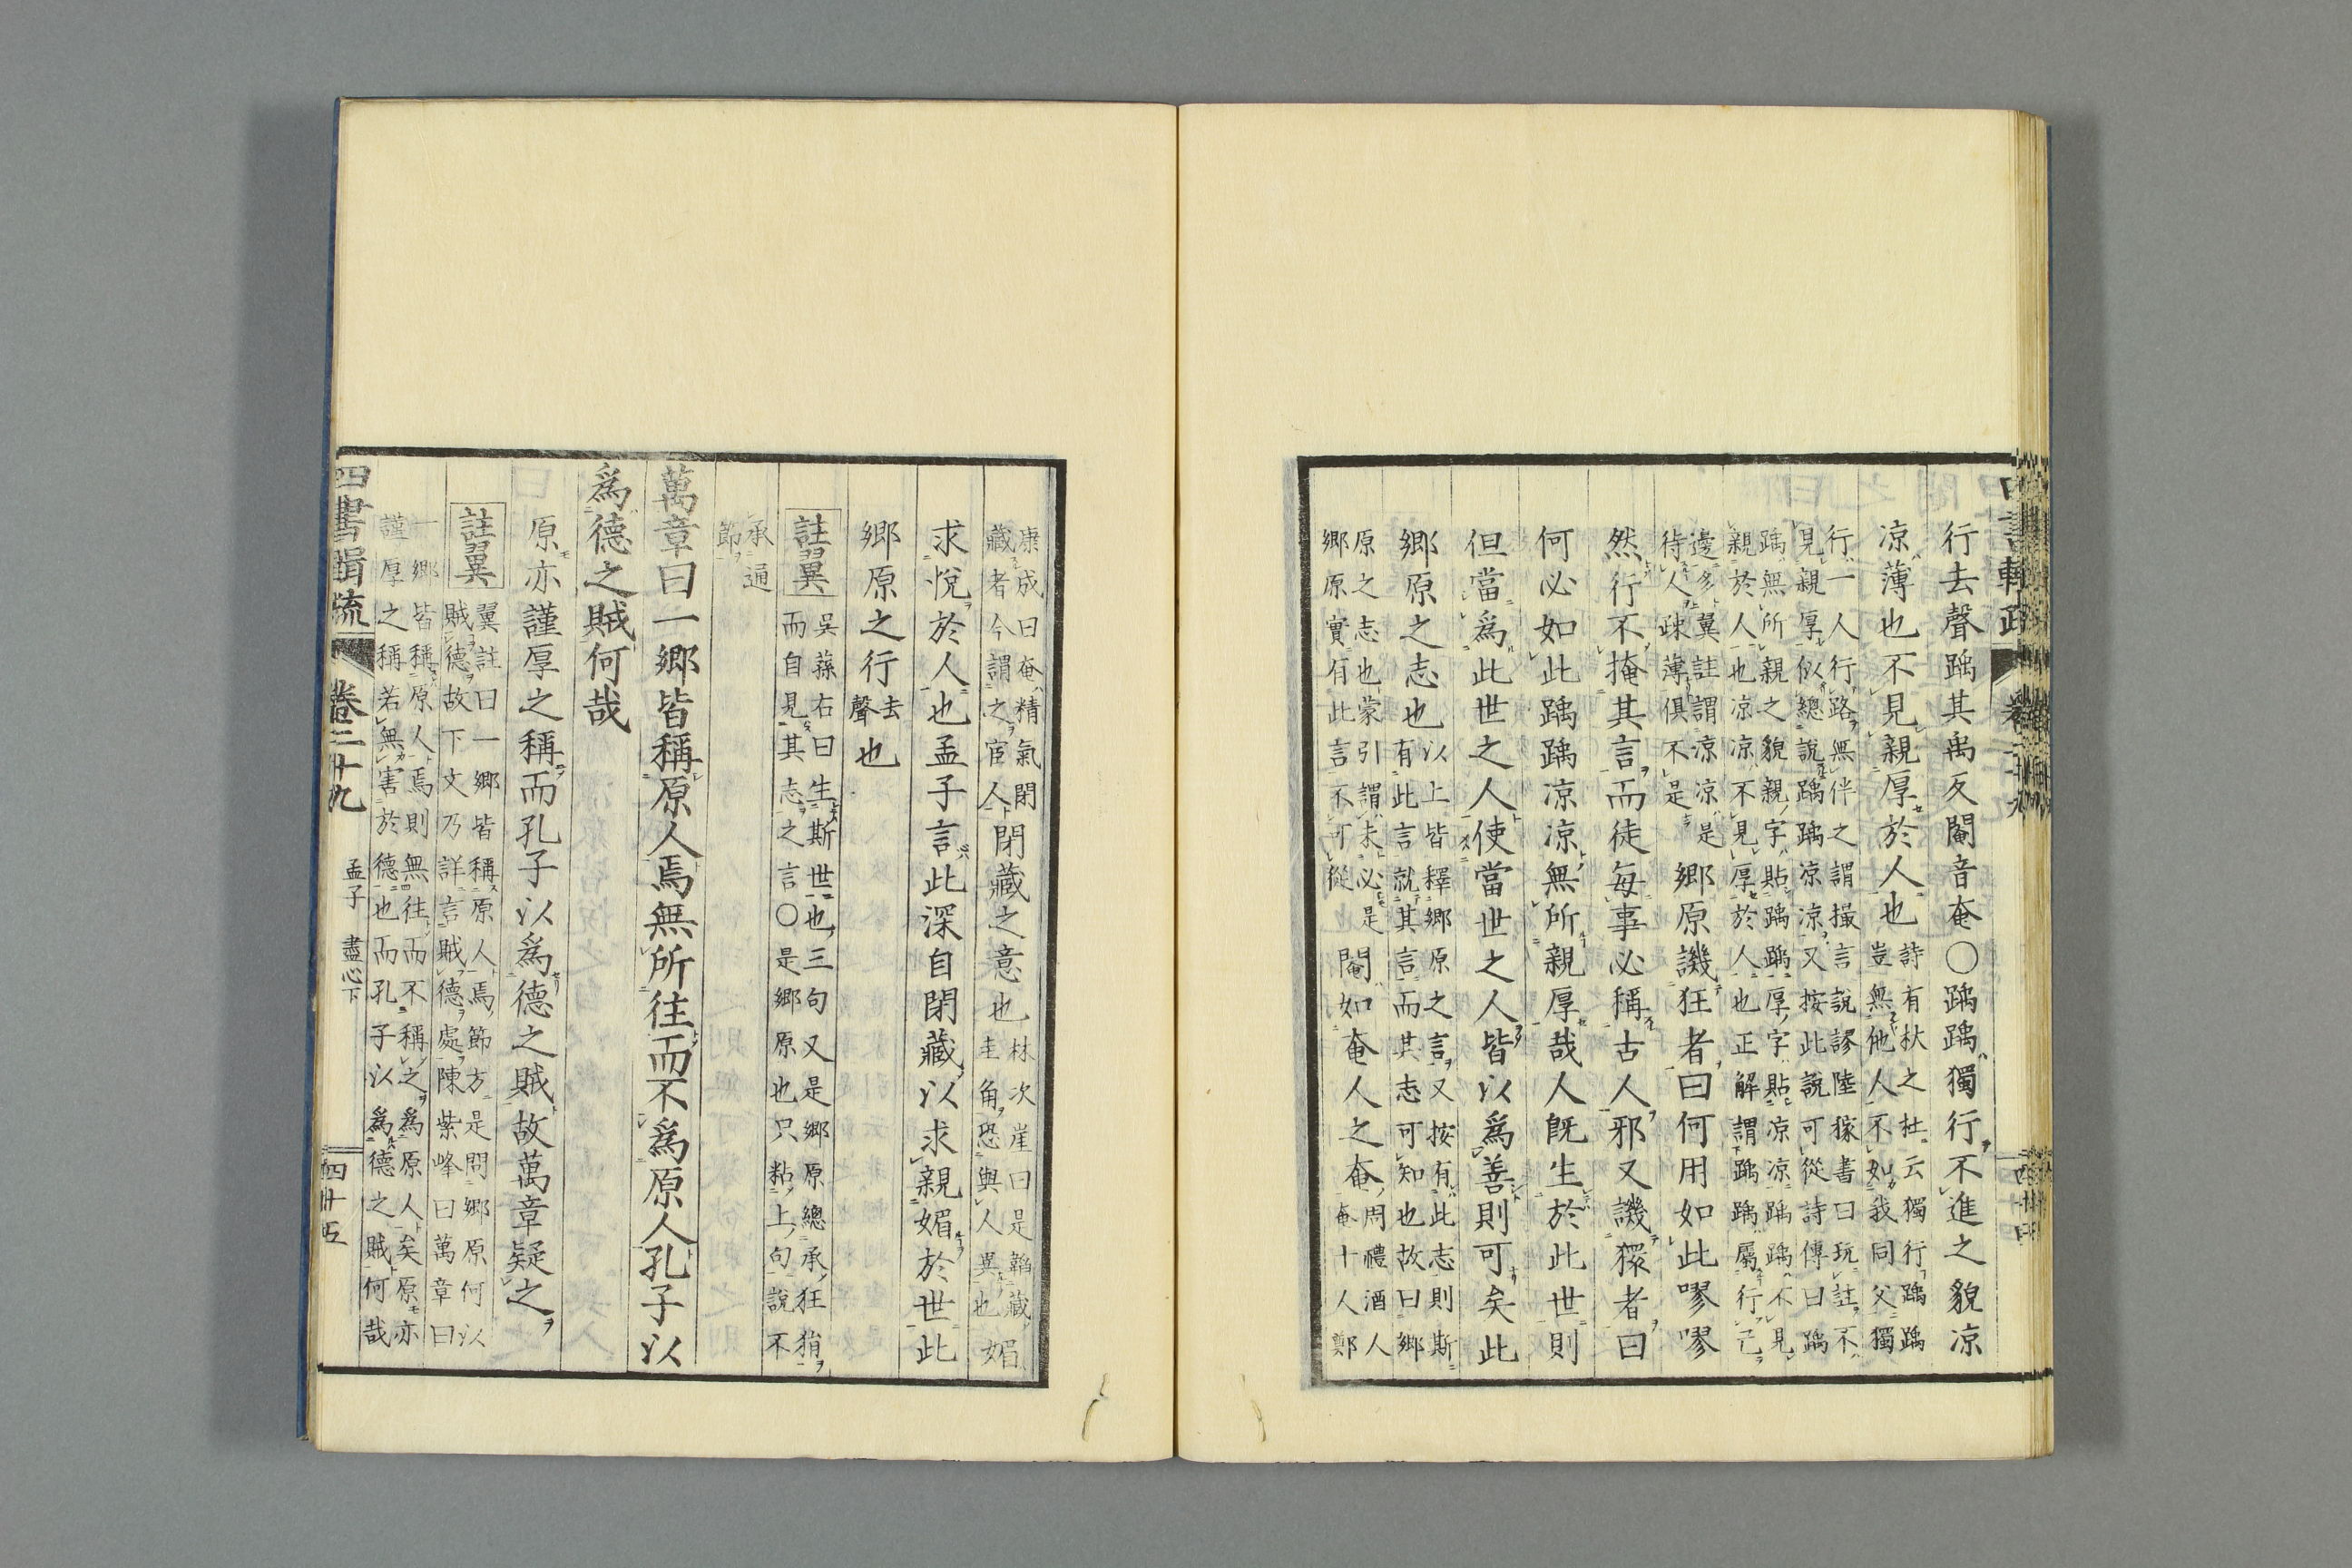 行去聲踽其禹反閹音奄○踽踽獨行不進之貌凉
凉薄也不見親厚於人也詩有杕之杜云獨行踽踽
豈無他人不如我同父獨
行一人行路無伴之謂撮言說謬陸稼書曰玩註不
見親厚似總說踽踽凉凉又按此說可從詩傳曰踽
踽無所親之貌親字貼踽踽厚字貼凉凉踽踽不見
親於人也凉凉不見厚於人也正解謂踽踽屬行己
邊多翼註謂凉凉是
待人疎薄俱不是鄉原譏狂者曰何用如此嘐嘐
然行不掩其言而徒每事必稱古人邪又譏獧者曰
何必如此踽踽凉凉無所親厚哉人旣生於此世則
但當爲此世之人使當世之人皆以爲善則可矣此
鄉原之志也以上皆釋鄉原之言又按有此志則斯
有此言就其言而其志可知也故曰鄉
原之志也蒙引謂未必是
鄉原實有此言不可從閹如奄人之奄周禮酒人
奄十人鄭
四書輯疏 卷二十九 孟子 盡心下 四十五
康成曰奄精氣閉
藏者今謂之宦人閉藏之意也林次崖曰是韜藏
圭角恐與人異也媚
求悅於人也孟子言此深自閉藏以求親媚於世此
鄉原之行去
聲也
註翼 吳蓀右曰生斯世也三句又是鄉原總承狂狷
而自見其志之言○是鄉原也只粘上句說不
承通
節
萬章曰一鄉皆稱原人焉無所往而不爲原人孔子以
爲德之賊何哉
原亦謹厚之稱而孔子以爲德之賊故萬章疑之
註翼 翼註曰一鄉皆稱原人焉節方是問鄉原何以
賊德故下文乃詳言賊德處陳紫峰曰萬章曰
一鄉皆稱原人焉則無往而不稱之爲原人矣原亦
謹厚之稱若無害於德也而孔子以爲德之賊何哉